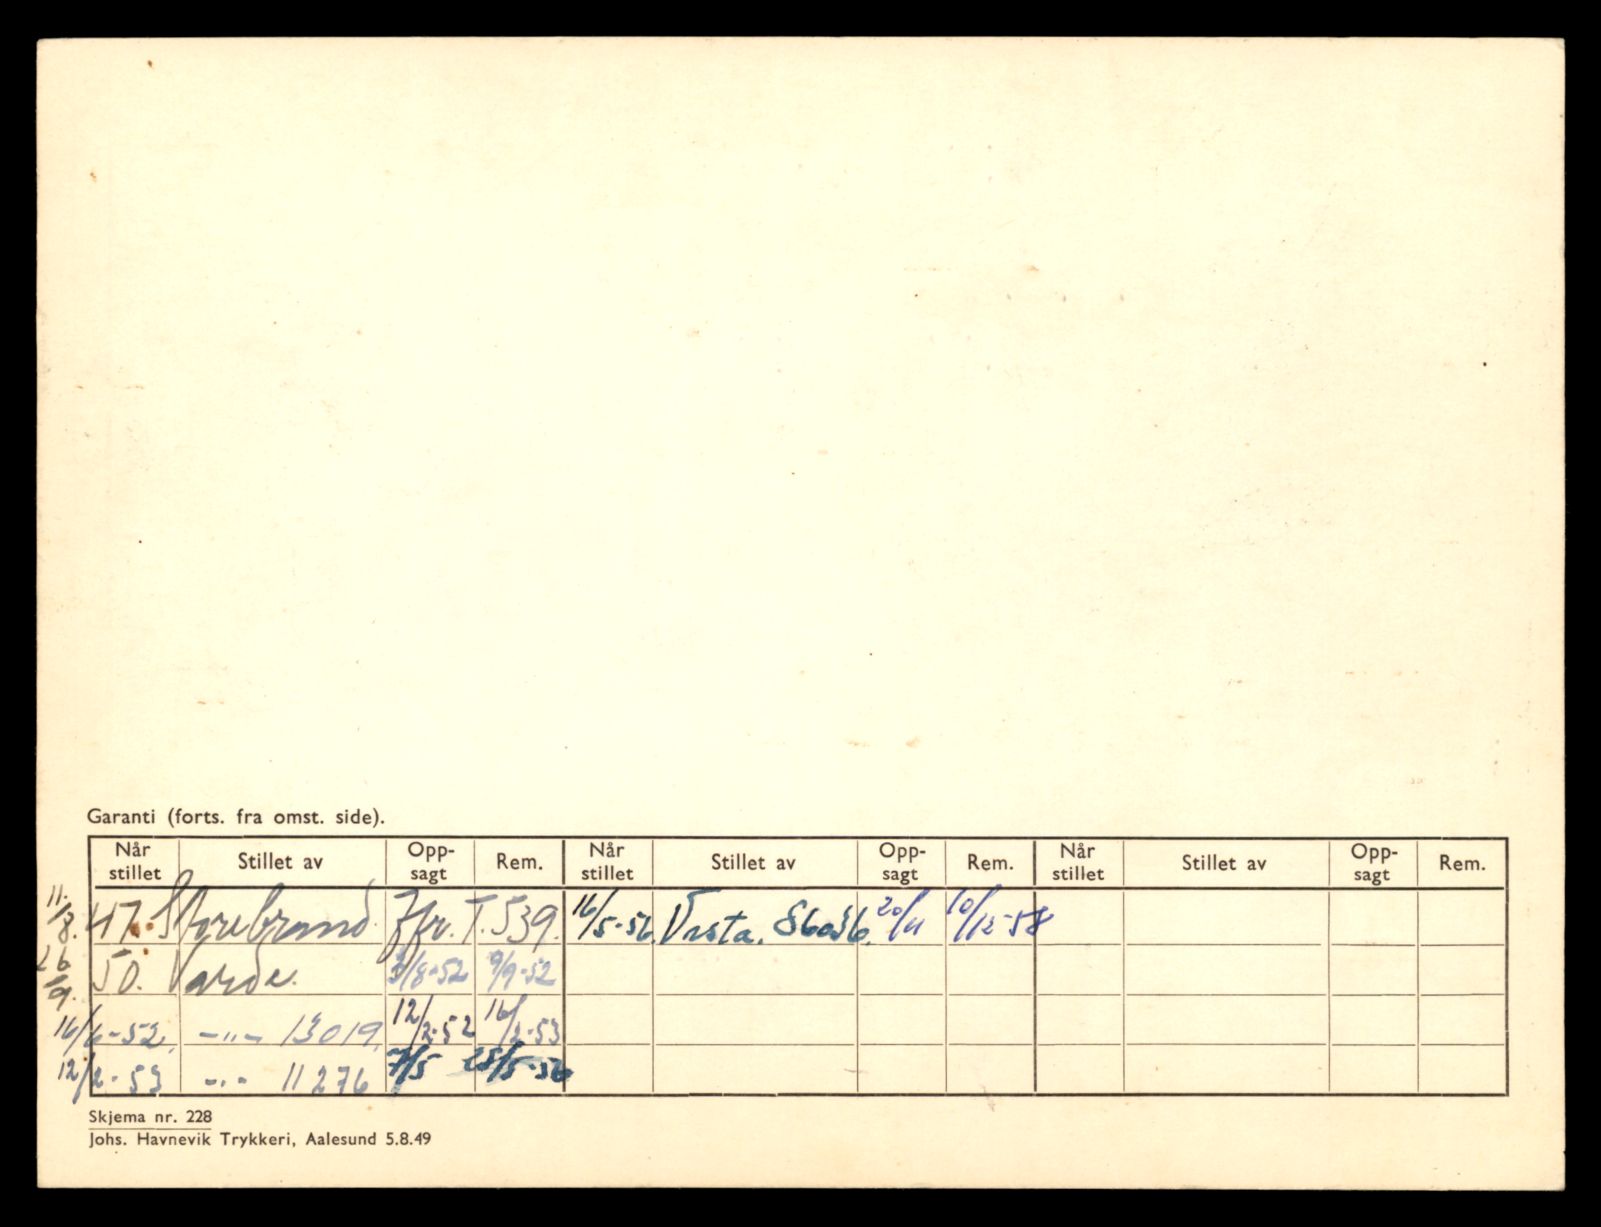 Garanti (forts. fra omst. side).
Når stillet Stillet av Opp-sagt Rem. Når stillet Stillet av Opp-sagt Rem. Når stillet Stillet av Opp-sagt Rem.
11/8. 47. Storebrand. T. 539. 16/5-56. Vesta. 20/11 10/12-58
26/9. 50. Varde. /8-52 9/9-52
16/6-52, -"- 13019, 12/2-52 16/2-53
12/2-53 -"- 11276 7/5 25/5-56
Skjema nr. 228
Johs. Havnevik Trykkeri, Aalesund 5.8.49